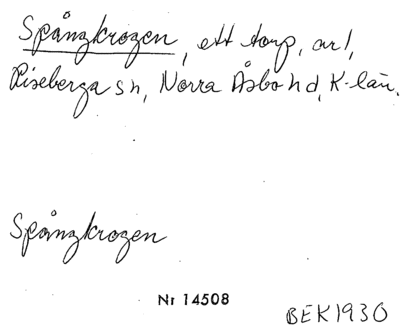 Spångkrogen, ett torp, arl,
Riseberga sn, Norra Åsbo hd, K-län.
Spångkrogen
Nr 14508
BEK1930